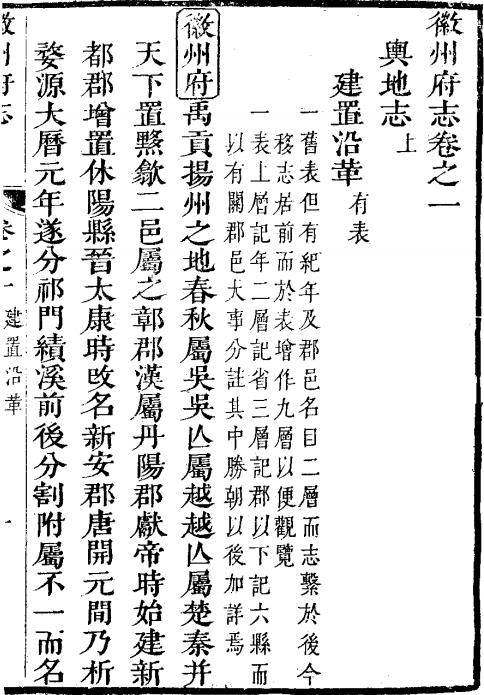 徽州府志卷之一
輿地志上
建置沿革有表
一舊表但有紀年及郡邑名目二層而志繫於後今
移志居前而於表增作九層以便觀覽
一表上層記年二層記省三層記郡以下記六縣而
以有關郡邑大事分註其中勝朝以後加詳焉
徽州府禹貢揚州之地春秋屬吳吳亾屬越越亾屬楚秦并
天下置黟歙二邑屬之鄣郡漢屬丹陽郡獻帝時始建新
都郡增置休陽縣晉太康時改名新安郡唐開元間乃析
婺源大曆元年遂分祁門績溪前後分割附屬不一而名
徽州府志 卷之一建置沿革 一